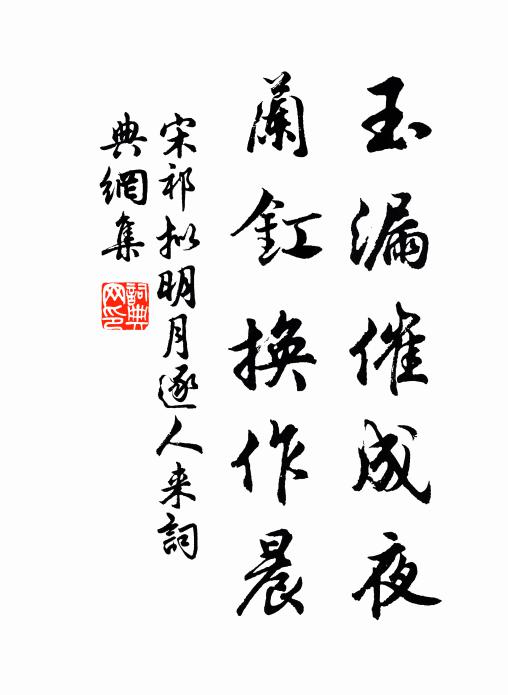 玉漏催成夜
蘭釭換作晨
宋祁拟明月逐人来詞
典網集
詞典網印